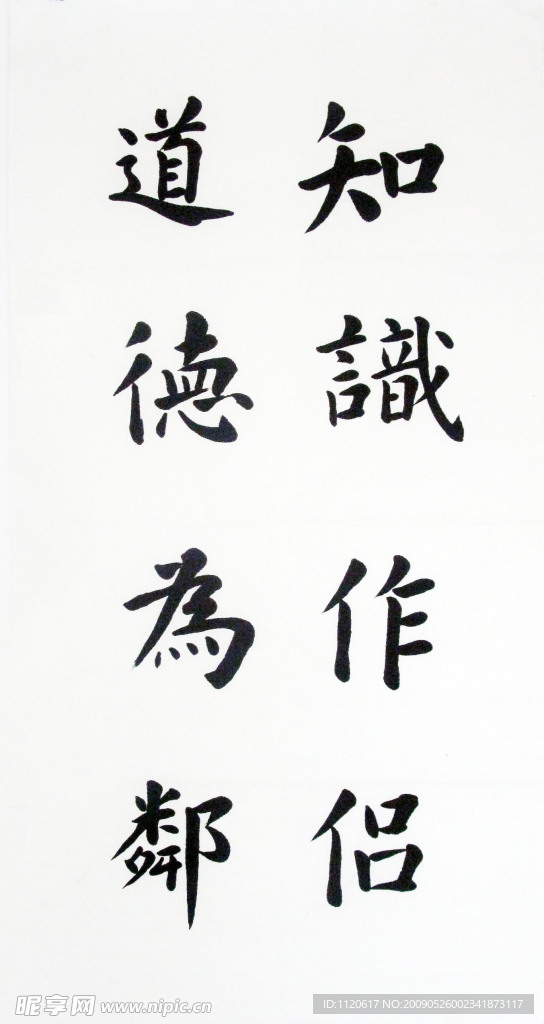 知識作侣
道德為鄰
昵享网 www.nipic.cn
ID:1120617 NO:20090526002341873117